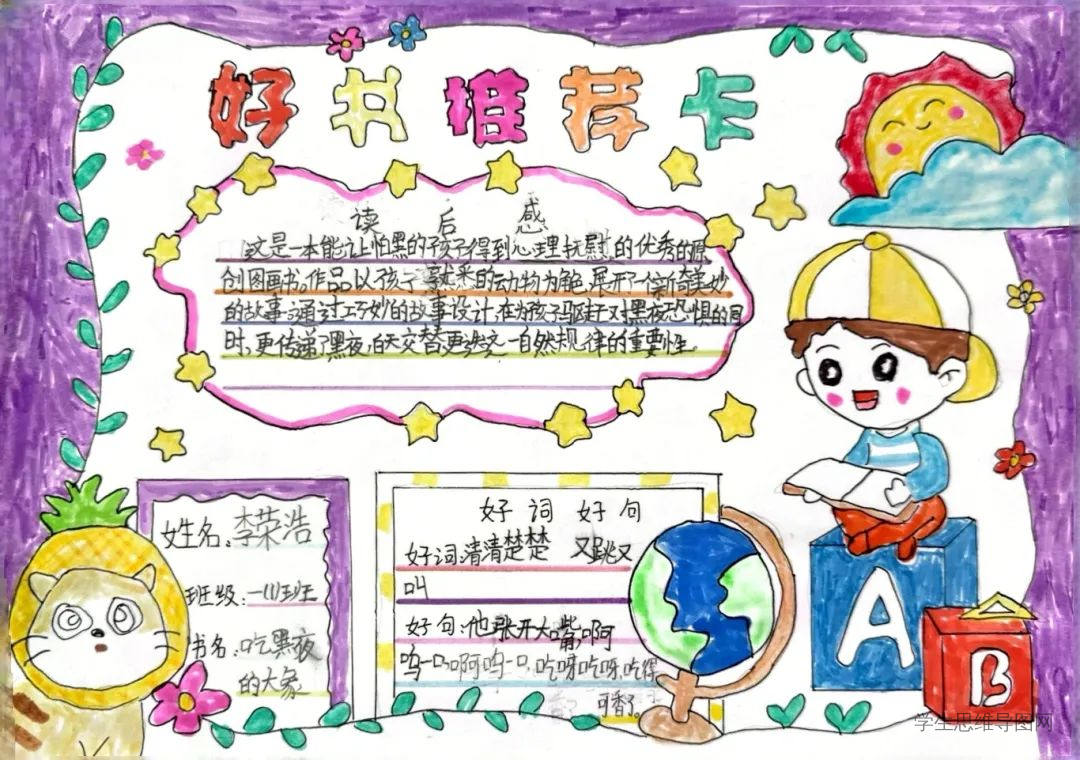 好书推荐卡
读后感
这是一本能让怕黑的孩子得到心理抚慰的优秀的原
创图画书。作品以孩子熟悉的动物为角色,展开了一个新奇美妙
的故事,通过巧妙的故事设计,在为孩子驱赶对黑夜恐惧的同
时,更传递了黑夜,白天交替更迭这一自然规律的重要性。
姓名:李荣浩
班级:一(1)班
书名:吃黑夜
的大象
好词好句
好词:清清楚楚 又跳又
叫
好句:他张开大嘴,啊
呜一口,啊呜一口,吃呀吃呀,吃得
可香了。
学生思维导图网